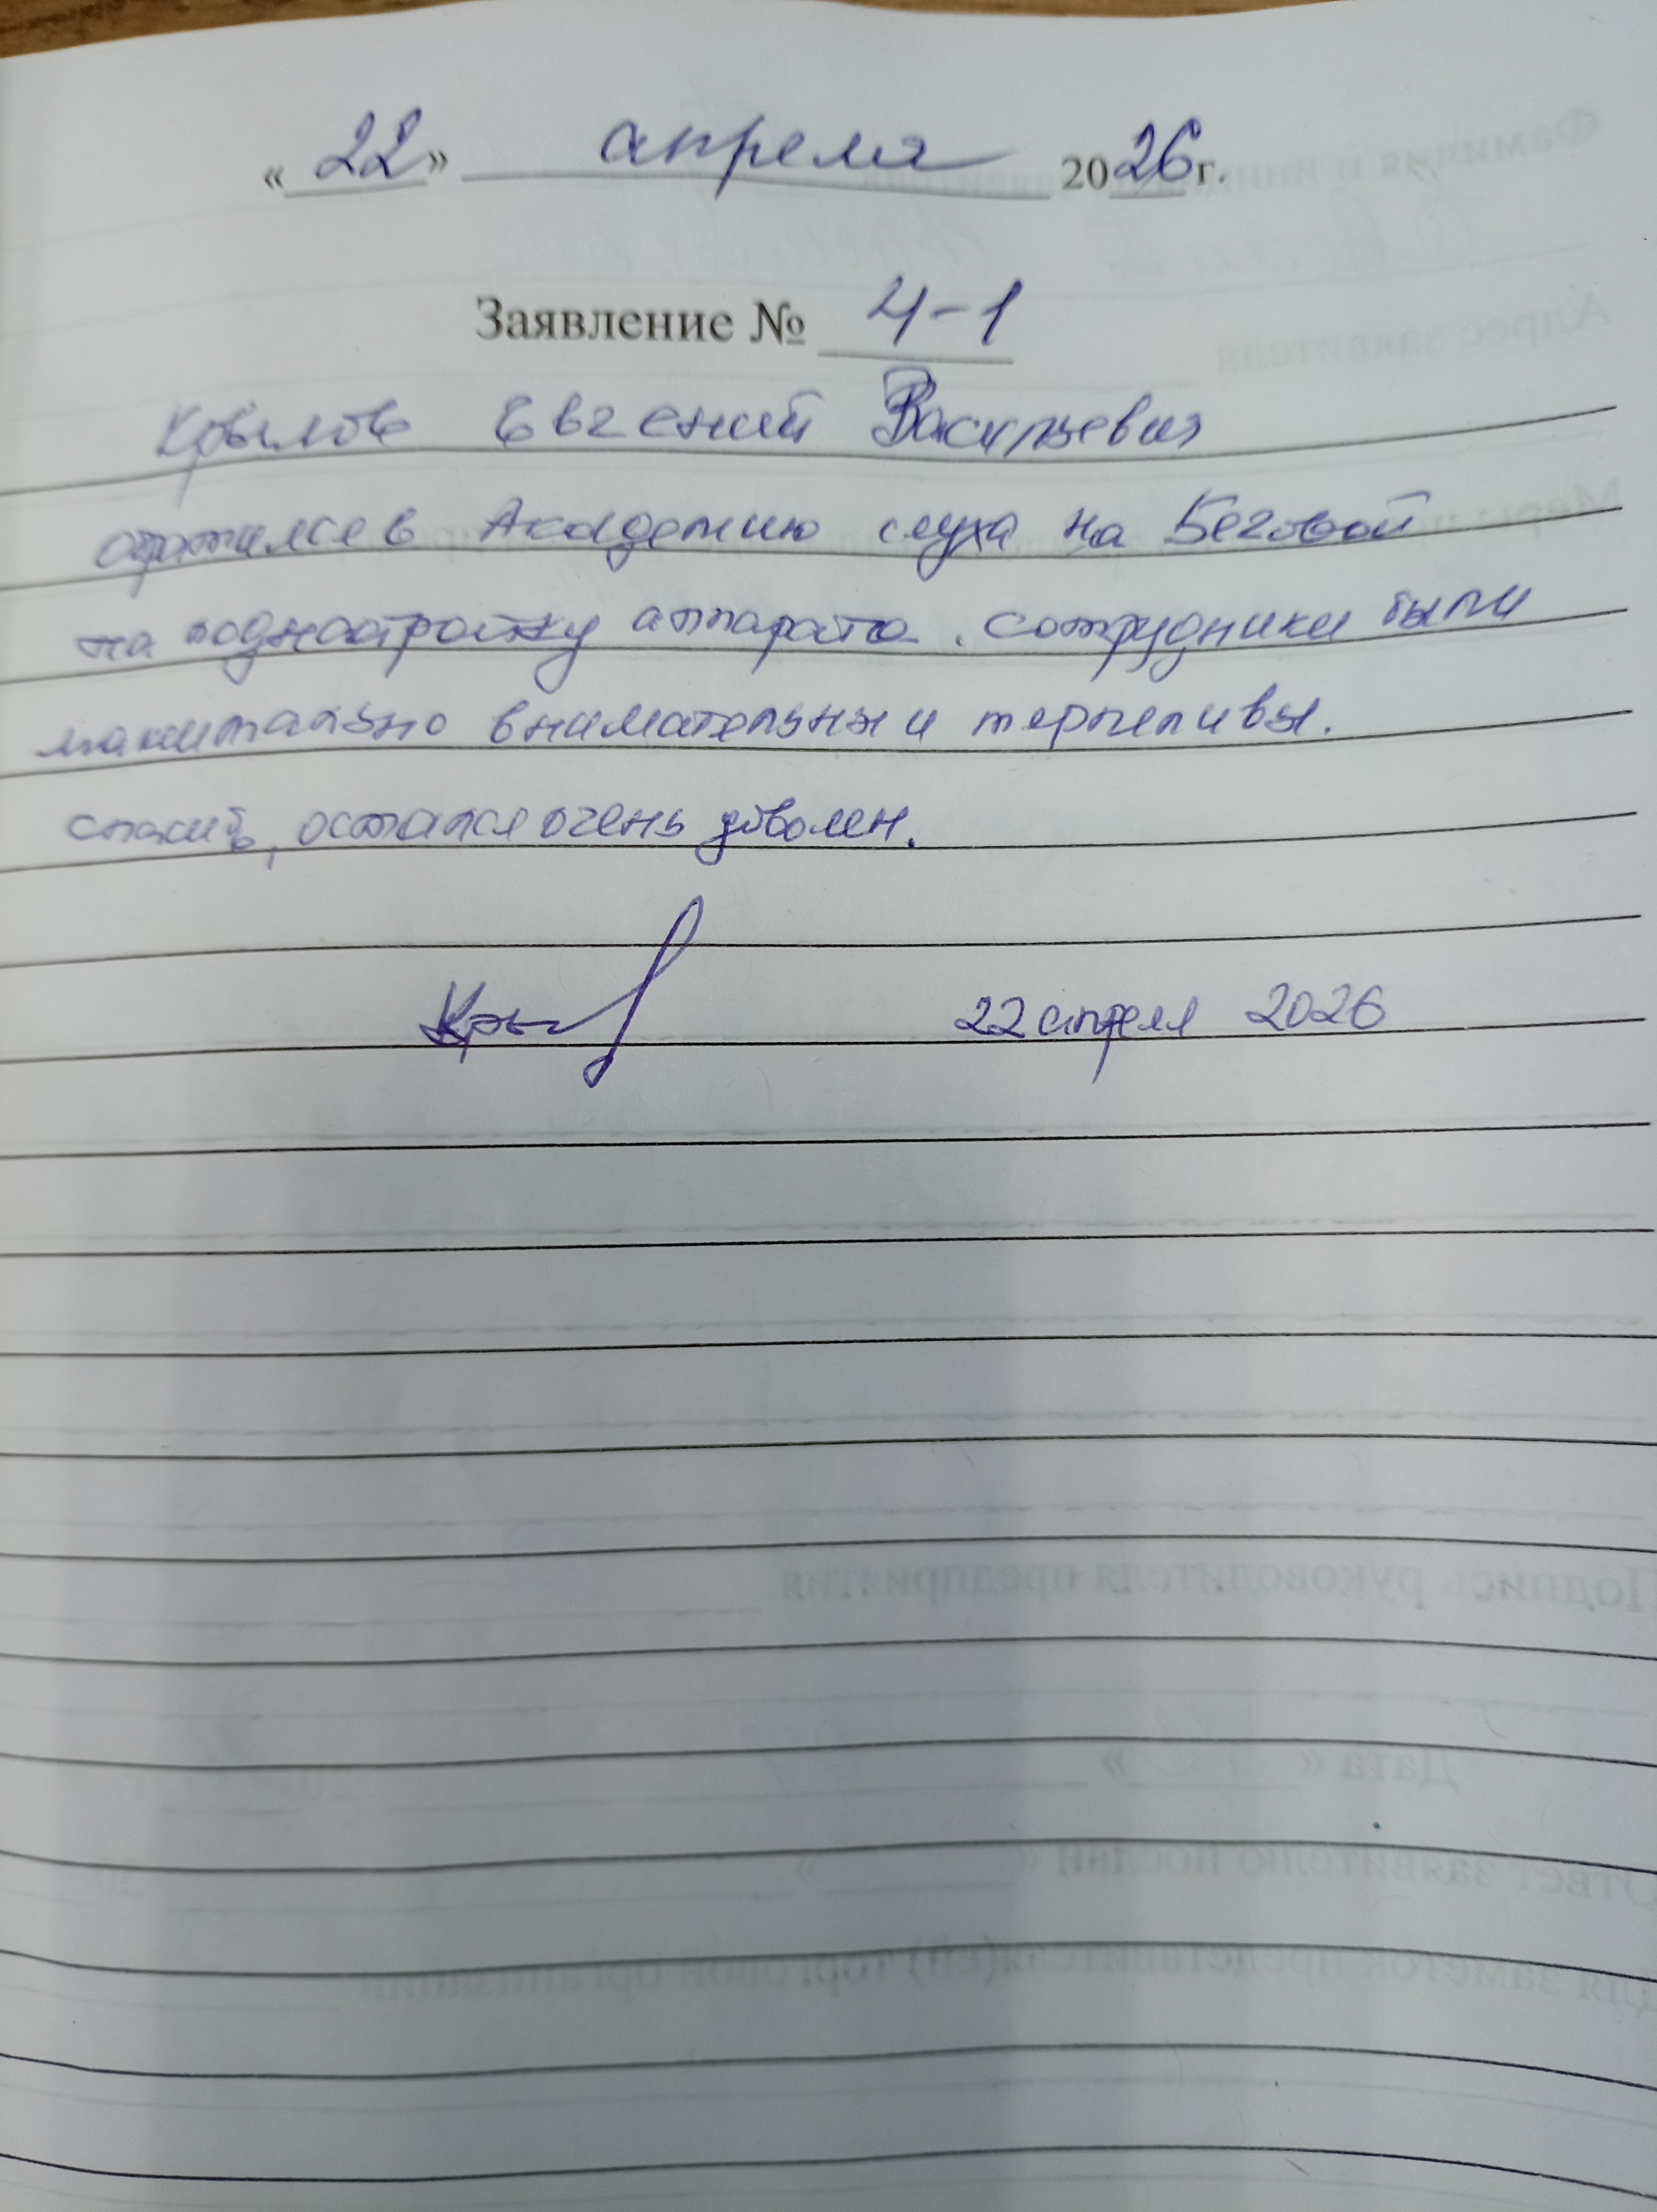 «22» апреля 2026г.
Заявление № 4-1
Крылов Евгений Васильевич
обратился в Академию слуха на Беговой
на поднастройку аппарата. Сотрудники были
максимально внимательны и терпеливы.
спасибо, остался очень доволен.
22 апреля 2026